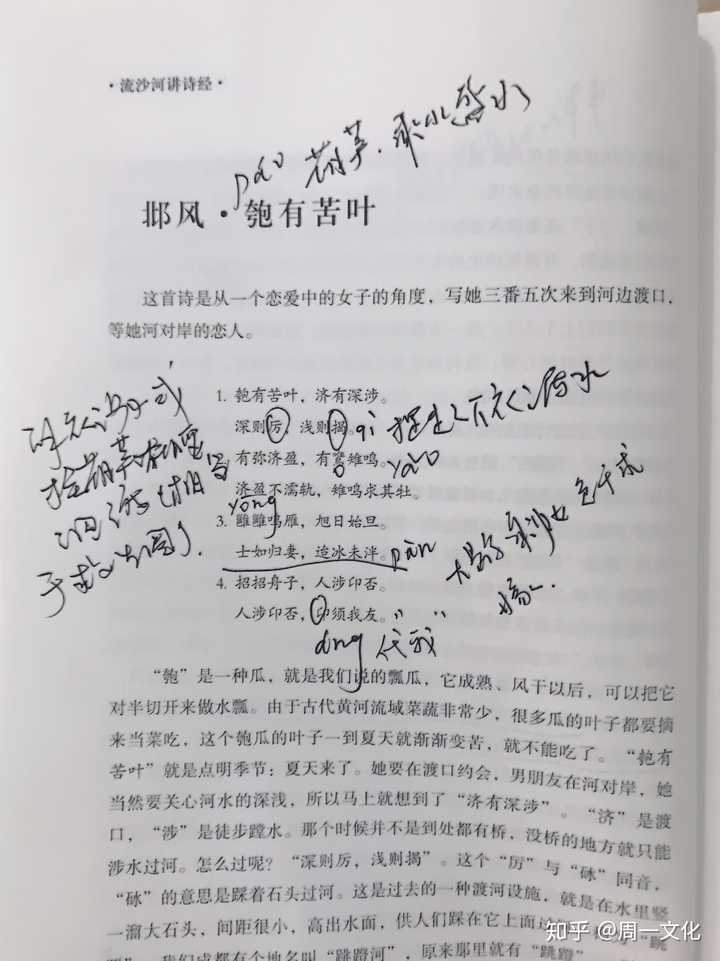 ·流沙河讲诗经·
pao 葫芦.
邶风·匏有苦叶
这首诗是从一个恋爱中的女子的角度，写她三番五次来到河边渡口，
等她河对岸的恋人。
1. 匏有苦叶，济有深涉。
深则厉，浅则揭。
qi
有弥济盈，有鷕雉鸣。
yǎo
济盈不濡轨，雉鸣求其牡。
yong
3. 雝雝鸣雁，旭日始旦。
士如归妻，迨冰未泮。
pàn
4. 招招舟子，人涉卬否。
人涉卬否，卬须我友。
ang 代我
“匏”是一种瓜，就是我们说的瓢瓜，它成熟、风干以后，可以把它
对半切开来做水瓢。由于古代黄河流域菜蔬非常少，很多瓜的叶子都要摘
来当菜吃，这个匏瓜的叶子一到夏天就渐渐变苦，就不能吃了。“匏有
苦叶”就是点明季节：夏天来了。她要在渡口约会，男朋友在河对岸，她
当然要关心河水的深浅，所以马上就想到了“济有深涉”。“济”是渡
口，“涉”是徒步蹚水。那个时候并不是到处都有桥，没桥的地方就只能
涉水过河。怎么过呢？“深则厉，浅则揭”。这个“厉”与“砅”同音，
“砅”的意思是踩着石头过河。这是过去的一种渡河设施，就是在水里竖
一溜大石头，间距很小，高出水面，供人们踩在它上面过
我们成都有个地名叫“跳蹬河”，原来那里就有“跳蹬
知乎 @周一文化